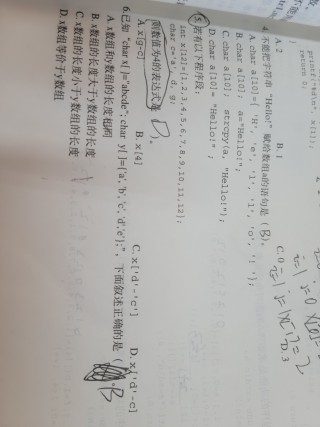 printf("%d\n", x[i]);
return 0;
A. 2
B. 1
C. 0
D. 3
4. 不能把字符串 "Hello!" 赋给数组a的语句是 ( B ).
A. char a[10]={ 'H', 'e', 'l', 'l', 'o', '!'};
B. char a[10]; a="Hello!";
C. char a[10]; strcpy(a, "Hello!");
D. char a[10]= "Hello!" ;
5. 若有以下程序段:
int x[12]={1,2,3,4,5,6,7,8,9,10,11,12};
char c='a', d, g;
则数值为4的表达式是 D 。
A. x[g-c]
B. x[4]
C. x['d'-'c']
D. x['d'-c]
6. 已知 "char x[ ]="abcde"; char y[ ]={'a','b','c','d','e'};", 下面叙述正确的是 ( B
A. x数组和y数组的长度相同
B. x数组的长度大于y数组的长度
C. x数组的长度小于y数组的长度
D. x数组等价于y数组